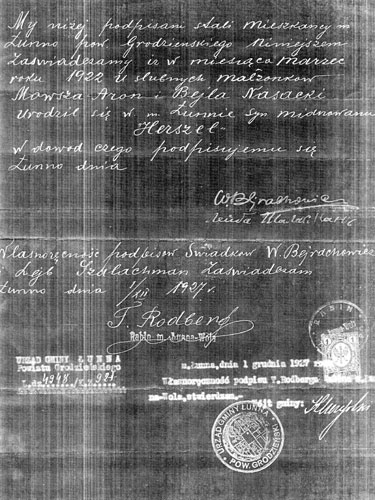 My niżej podpisani stali mieszkańcy m.
Łunno pow. Grodzieńskiego niniejszem
zaświadczamy iż w miesiącu marzec
roku 1922 u ślubnych małżonków
Mowsza-Aron i Bejla Kasacki
urodził się w m. Łunnie syn mianowany
Herszel-
w dowód czego podpisujemy się
Łunno dnia
W. Bejrachowicz
Własnoręczność podpisów Świadków W. Bejrachowicz
Lejb Szklachman zaświadczam
Łunno dnia 1/XII 1927 r.
T. Rodberg
Rabin m. Łunna-Wola
URZĄD GMINY ŁUNNA
Powiatu Grodzieńskiego
m. Łunna, dnia 1 grudnia 1927 roku
Własnoręczność podpisu T. Rodberga
na-Wola, stwierdzam.
Wójt gminy:
URZĄD GMINY ŁUNNA
POW. GRODZIEŃSKI
RABIN